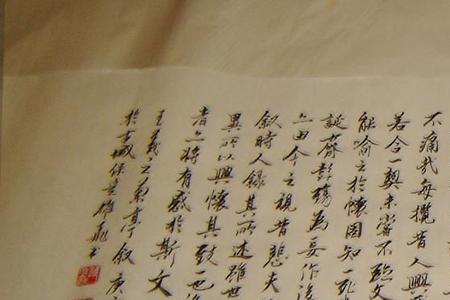 不痛哉每攬昔人興
若合一契未嘗不臨文
能喻之於懷固知一死
誕齊彭殤為妄作後
之由今之視昔悲夫
敘時人錄其所述雖世
異所以興懷其致一也後
者亦將有感於斯文
王羲之蘭亭敘庚
於古城保定